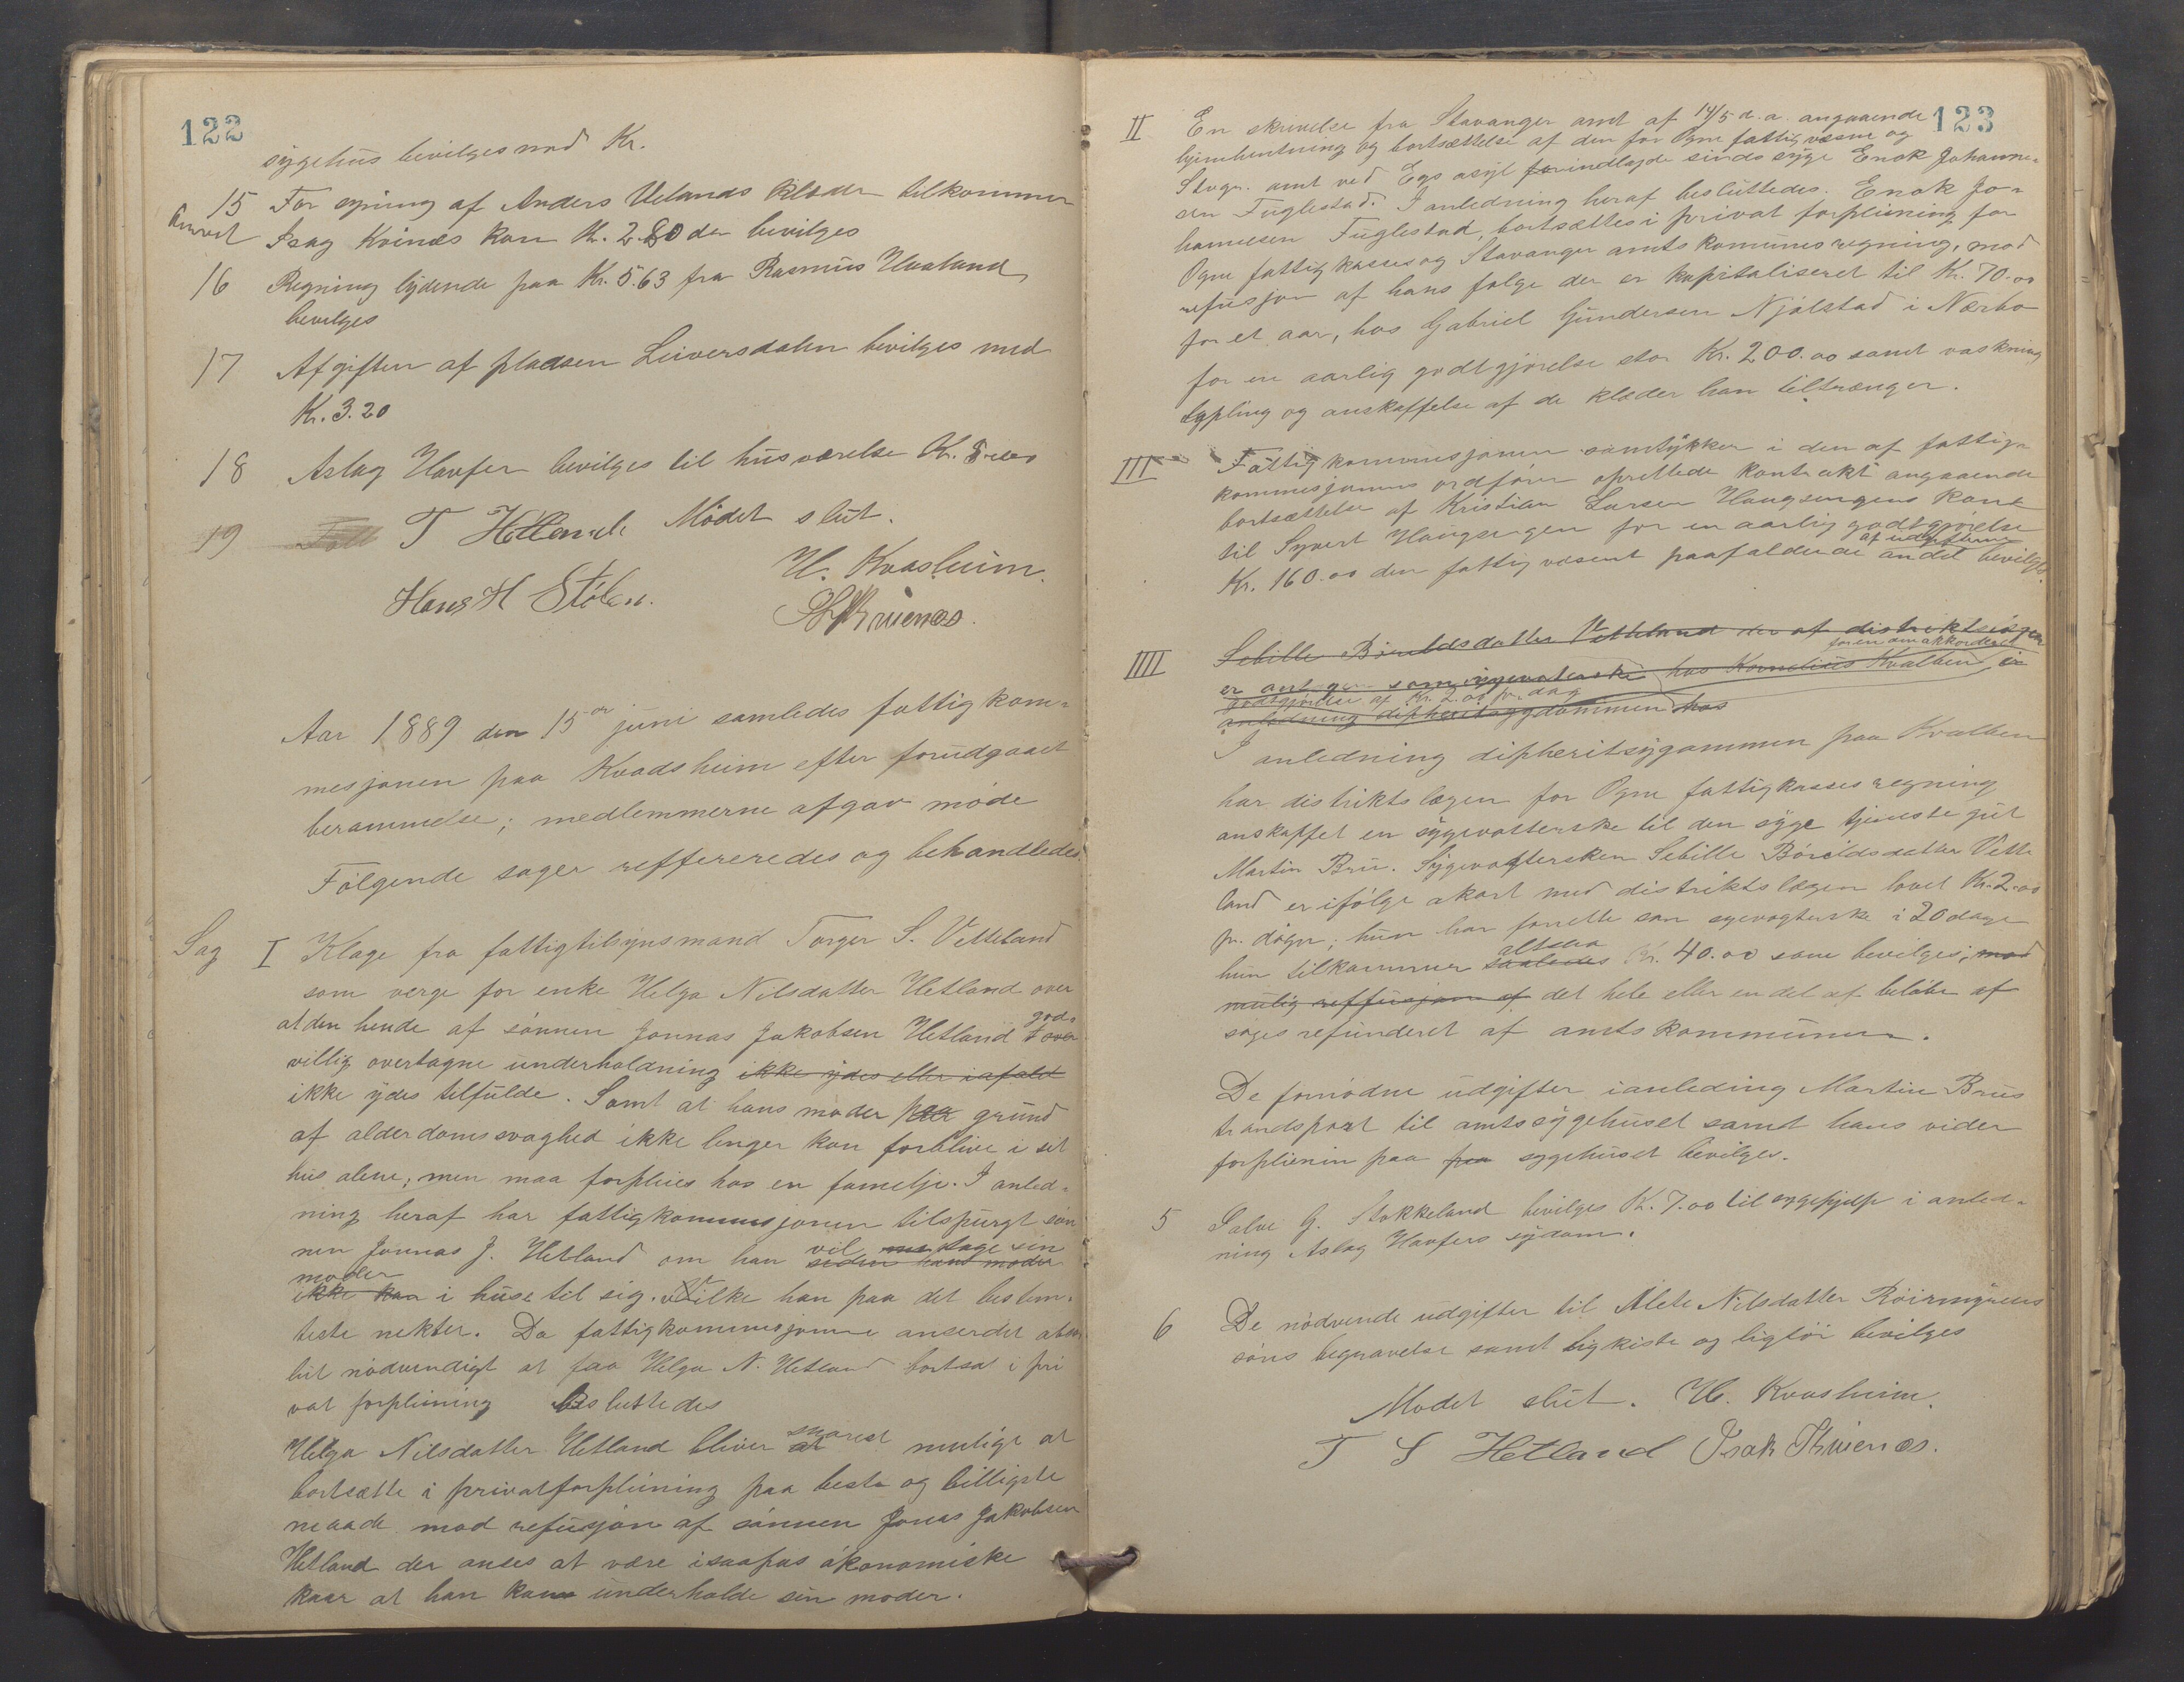 122
sygehus bevilges med Kr.
15 For syning af Anders Uelands klæder tilkommer
Isag Kvinæs kan Kr. 2.80 der bevilges
16 Regning lydende paa Kr. 5.63 fra Rasmus Haaland
bevilges
17 Afgiften af pladsen Liiversdalen bevilges med
Kr. 3.20
18 Aslag Havfer bevilges til husværelse Kr.
19 T Hetland Mödet slut.
H. Kvasheim.
Hans H Stölen.
Aar 1889 den 15de juni samledes fattigkom=
mesjonen paa Kvadsheim efter forudgaaet
berammelse; medlemmerne afgav möde
Fölgende sager reffereredes og behandledes.
Sag I Klage fra fattigtilsynsmand Torger S. Vetteland
som verge for enke Helga Nilsdatter Hetland over
at den hende af sönnen Jonnas Jakobsen Hetland god=
villig overtagne underholdning ikke ydes eller iafald
ikke ydes tilfulde. Samt at hans moder paa grund
af alderdomssvaghed ikke lenger kan forblive i sit
hus alene, men maa forpleies hos en familje. I anled=
ning heraf har fattigkommusjonen tilspurgt sön
nen Jonnas J. Hetland om han vil tage sin
siden hans moder
moder
ikke kan i huse til sig. Vilke han paa det bestem=
teste nekter. Da fattigkommesjonne anser det abso
lut nödvendigt at faa Helga N. Hetland bortsat i pri
vat forpleining besluttedes
Helga Nilsdatter Hetland bliver snarest mulige at
bortsætte i privatforpleining paa beste og billigste
maade mod refusjon af sönnen Jonas Jakobsen
Hetland der anses at være isaapas ökonomiske
kaar at han kan underholde sin moder.
123
II En skrivelse fra Stavanger amt af 14/5 d.a. angaaende
hjemhentning og bortsættelse af den for Ogne fattigvæsne og
Stvgr. amt ved Egs asyl forindlagde sindssyge Enok Johanne=
sen Fuglestad. I anledning heraf besluttedes. Enok Jo=
hannesen Fuglestad, bortsættes i privat forpleining for
Ogne fattigkasses og Stavanger amtskomunes regning, mod
refusjon af hans følge der er kapitaliseret til Kr. 70.00
for et aar, hos Gabriel Gundersen Njålstad i Nærbo
for en aarlig godtgjörelse stor Kr. 200.00 samt vaskning
lapling og anskaffelse af de klæder han tiltrænger.
III Fattigkommusjonen samtykker i den af fattig=
kommisjonens ordförer oprettede kontrakt angaaende
bortsættelse af Kristian Larsen Haugsengens kone
til Syvert Haugsengen for en aarlig godtgjörelse
Kr. 160.00 den fattigvæsent paafaldende andel af udgifterne bevilges.
IIII Sebille Börildsdatter Vetteland der af distriktslægen
er antagen som sygevaterske hos Kornelius Kvalben i
for en den akkorderet
godtgjörelse af Kr. 2.00 pr. dag
anledning dipheritsygdommen hos
I anledning dipheritsygommen paa Kvalben
har distriktslægen for Ogne fattigkasses regning
anskaffet en sygevatterske til den syge tjeneste gut
Martin Bru. Sygevagtersken Sebille Börildsdatter Vette
land er ifölge akort med distriktslægen lovet Kr. 2.00
pr. dögn; hun har forrette som sygevagterske i 20 dage
hun tilkommer altsaa saaledes Kr. 40.00 som bevilges; mod
mulig reffusjon af det hele eller en del af belöbe af
söges refunderet af amtskommunen.
De fornödne udgifter ianleding Martin Brus
trandsport til amtssygehuset samt hans vider
forpleinin paa paa sygehuset bevilges.
5 Salve G. Stokkeland bevilges Kr. 7.00 til sygehjelp i anled=
ning Aslag Havfers sydom.
6 De nödvende udgifter til Alete Nilsdatter Röirmyrens
söns begravelse samt ligkiste og ligtöi bevilges
Modet slut. H. Kvasheim.
T S Hetland Isak Kvienæs.